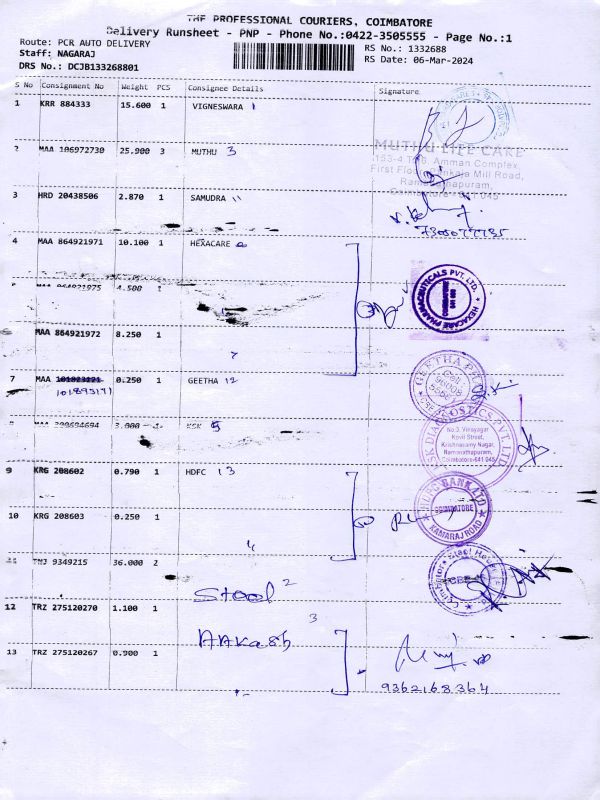 THE PROFESSIONAL COURIERS, COIMBATORE
Delivery Runsheet - PNP - Phone No.:0422-3505555 - Page No.:1
Route: PCR AUTO DELIVERY RS No.: 1332688
Staff: NAGARAJ RS Date: 06-Mar-2024
DRS No.: DCJB133268801
S No Consignment No Weight PCS Consignee Details Signature
1 KRR 884333 15.600 1 VIGNESWARA 1
2 MAA 106972730 25.900 3 MUTHU 3
MUTHU LIFE CARE
Amman Complex,
Mill Road,
Ramanathapuram,
Coimbatore - 641 045
3 HRD 20438506 2.870 1 SAMUDRA 11
4 MAA 864921971 10.100 1 HEXACARE
MAA 864921975 4.500 1
HEXACARE PHARMACEUTICALS PVT. LTD.
MAA 864921972 8.250 1
7 MAA 101893191 0.250 1 GEETHA 12
8 3.000 KSK 5
KSK DIAGNOSTICS PVT LTD
No.3, Vinayagar
Kovil Street,
Krishnasamy Nagar,
Ramanathapuram,
Coimbatore-641 045
9 KRG 208602 0.790 1 HDFC 13
HDFC BANK LTD
COIMBATORE
KAMARAJ ROAD
10 KRG 208603 0.250 1
11 9349215 36.000 2
Steel 2
12 TRZ 275120270 1.100 1 AAKash 3
13 TRZ 275120267 0.900 1
9362168364